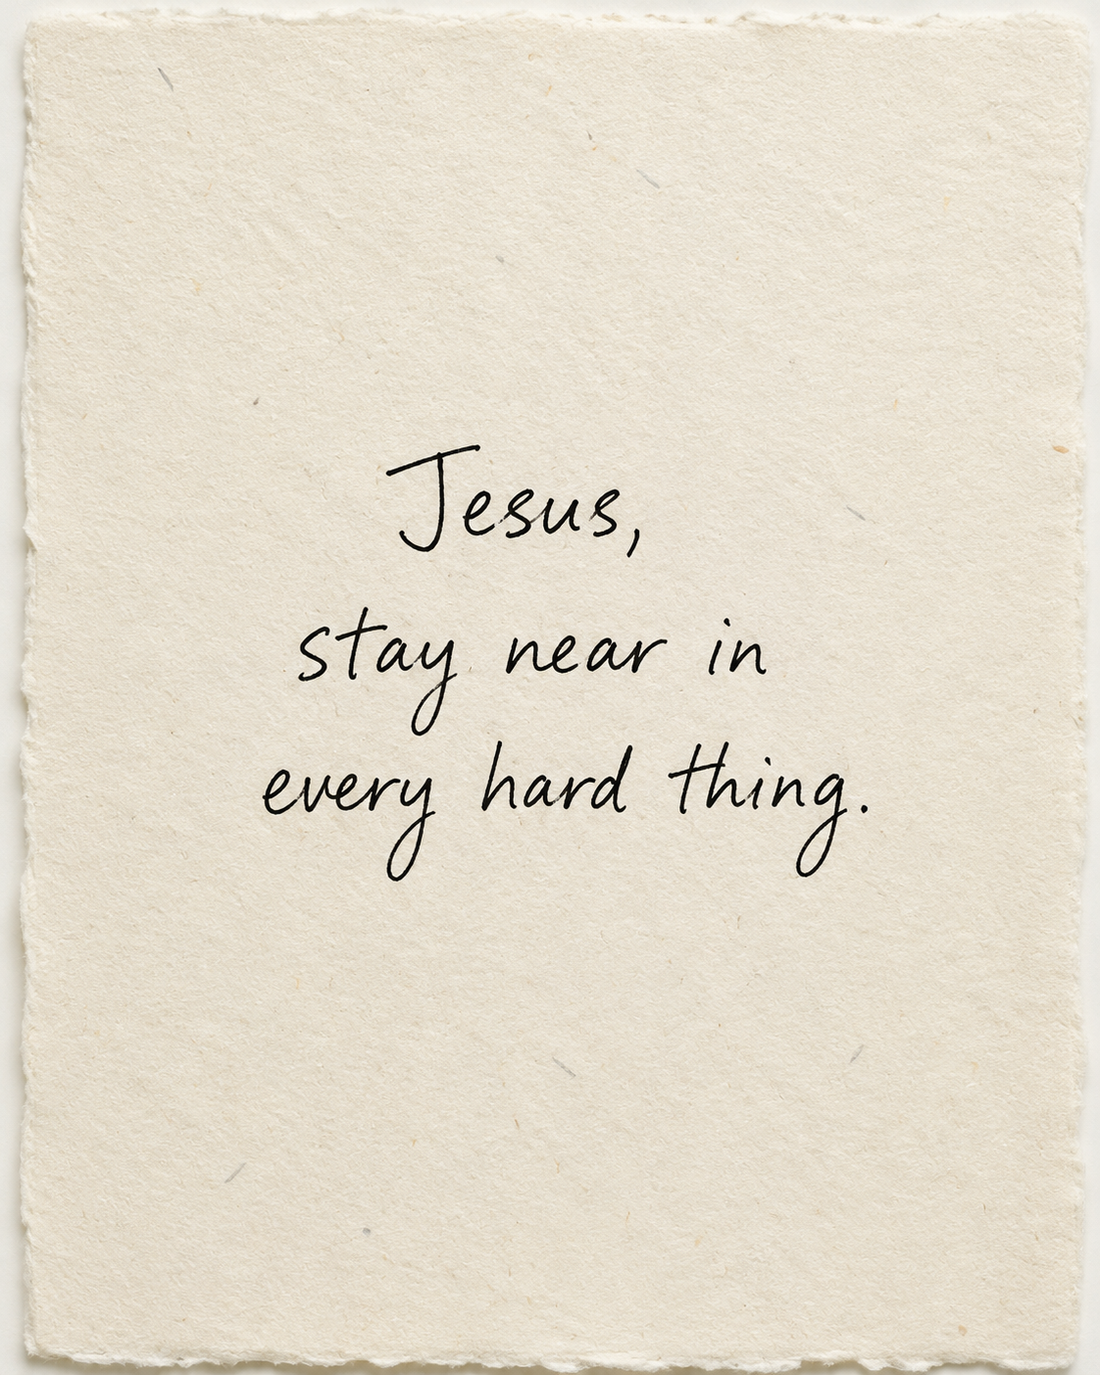 Jesus,
stay near in
every hard thing.